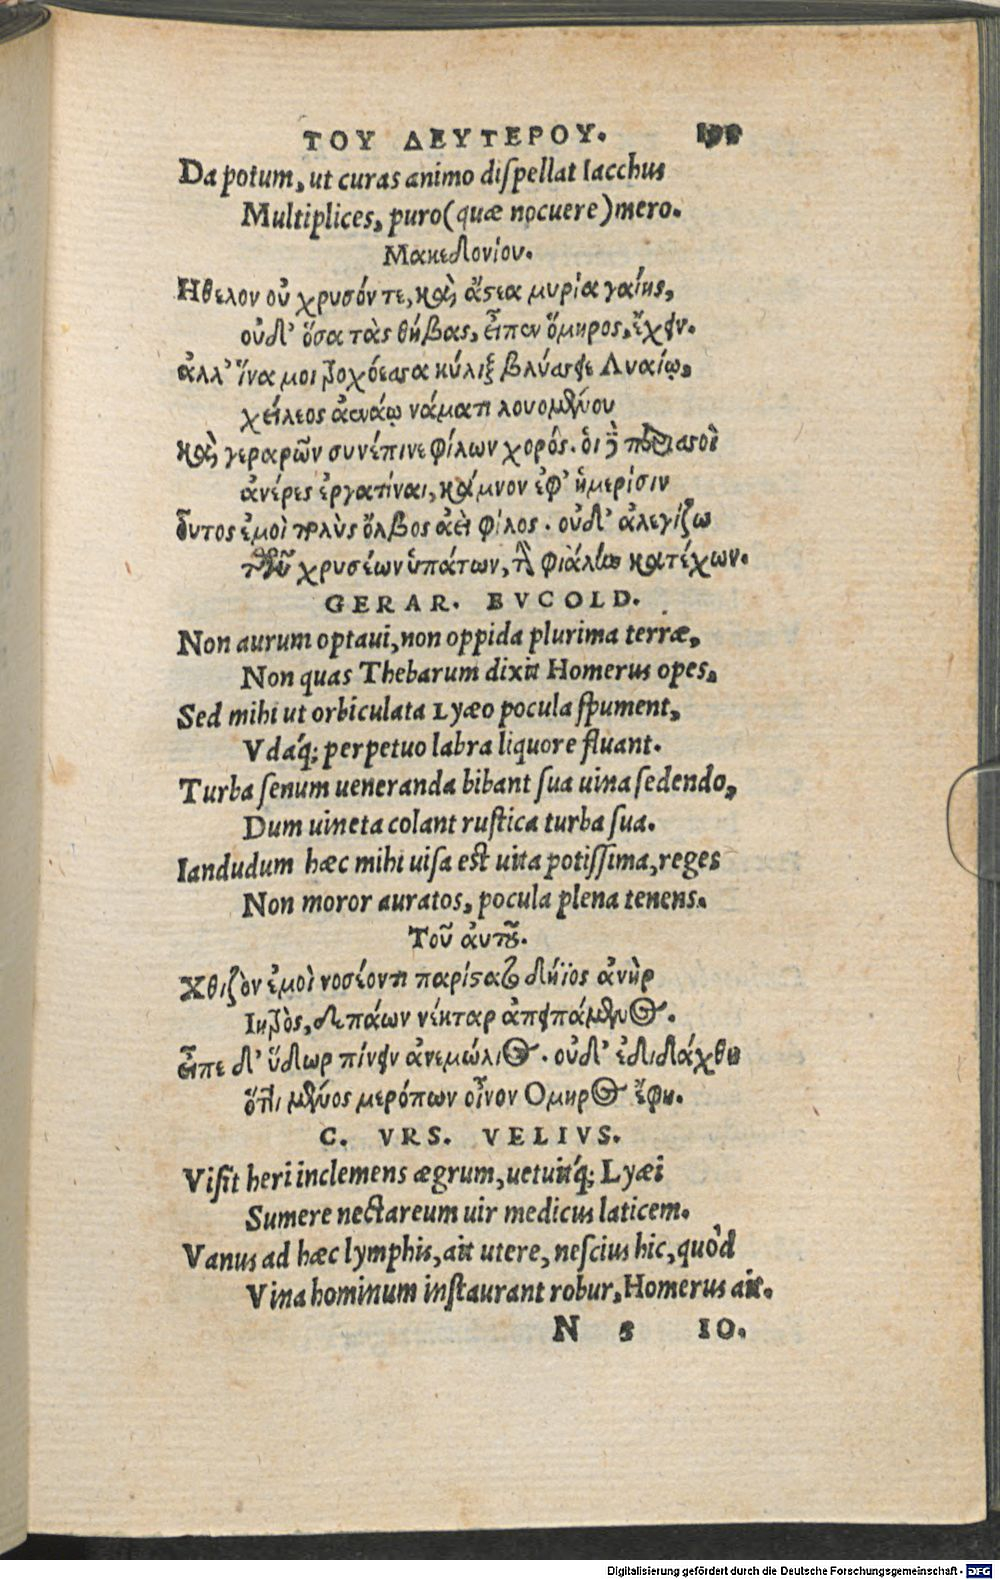 ΤΟΥ ΔΕΥΤΕΡΟΥ.
Da potum, ut curas animo dispellat Iacchus
Multiplices, puro (quæ nocuere) mero.
Μακεδονίου.
Ηθελον οὐ χρυσόν τε, καὶ ἄςεα μυρία γαίης,
οὐδ᾽ ὅσα τὰς θήβας, εἶπεν ὅμηρος, ἔχειν.
ἀλλ᾽ ἵνα μοι τροχόεσσα κύλιξ βλύσσειε Λυαίῳ,
χείλεος ἀενάῳ νάματι λουομένου
καὶ γεραρῶν συνέπινε φίλων χορός. ὁι δὲ περισσοὶ
ἀνέρες ἐργατίναι, κάμνον ἐφ᾽ ἡμερίσιν
ὗυτος ἐμοὶ πολὺς ὄλβος ἀεὶ φίλος. οὐδ᾽ ἀλεγίζω
τῶν χρυσέων ὑπάτων, τὴν φιάλην κατέχων.
GERAR. BVCOLD.
Non aurum optaui, non oppida plurima terræ,
Non quas Thebarum dixit Homerus opes,
Sed mihi ut orbiculata Lyæo pocula spument,
Vdaq́; perpetuo labra liquore fluant.
Turba senum ueneranda bibant sua uina sedendo,
Dum uineta colant rustica turba sua.
Iandudum hæc mihi uisa est uita potissima, reges
Non moror auratos, pocula plena tenens.
Τοῦ ἀυτοῦ.
Χθιζὸν ἐμοὶ νοσέοντι παρίςατο δήϊος ἀνὴρ
Ιητρὸς, δεπάων νέκταρ ἀπειπάμενος.
εἶπε δ᾽ ὕδωρ πίνειν ἀνεμώλιος. οὐδ᾽ ἐδιδάχθη
ὅττι μένος μερόπων οἶνον Ομηρος ἔφη.
C. VRS. VELIVS.
Visit heri inclemens ægrum, uetuitq́; Lyæi
Sumere nectareum uir medicus laticem.
Vanus ad hæc lymphis, ait utere, nescius hic, quòd
Vina hominum instaurant robur, Homerus ait.
N 5 IO.
Digitalisierung gefördert durch die Deutsche Forschungsgemeinschaft - DFG